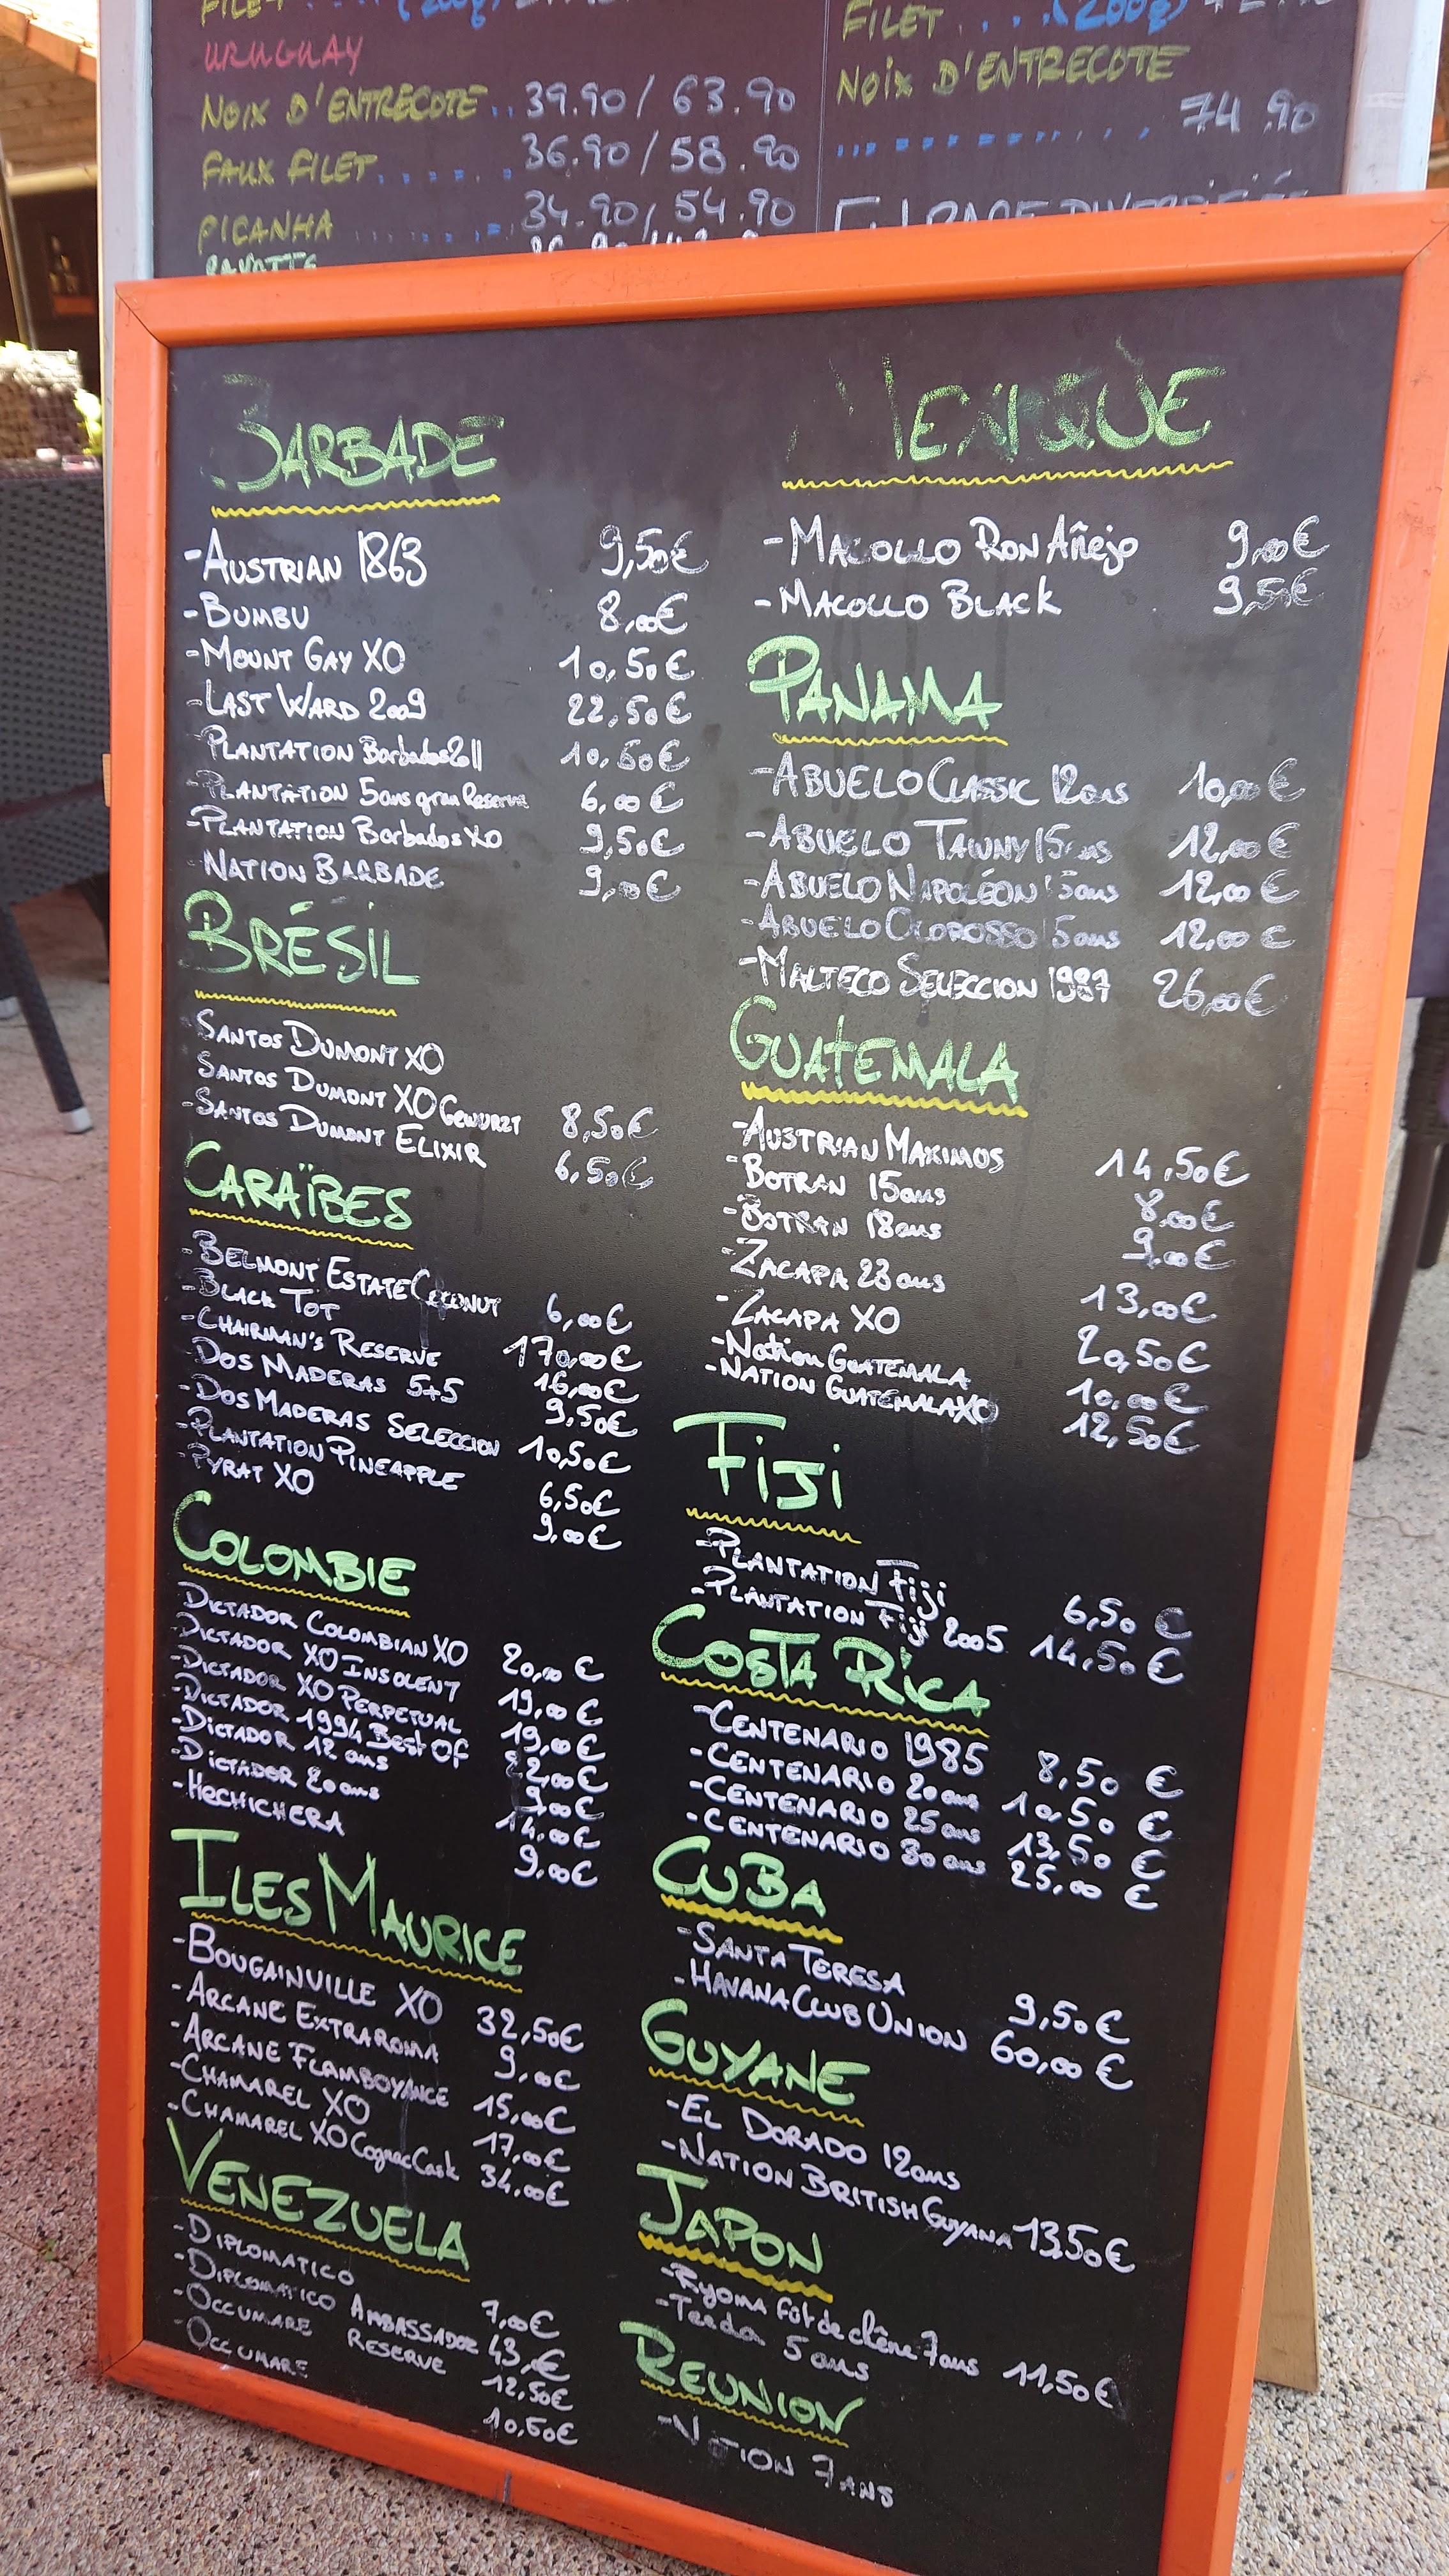 FILET .... (200g)
URUGUAY
NOIX D'ENTRECOTE .. 39.90 / 63.90
FAUX FILET ...... 36.90 / 58.90
PICANHA ...... 34.90 / 54.90
FILET .... (200g)
NOIX D'ENTRECOTE
......... 74.90
BARBADE
-AUSTRIAN 1863 9,50€
-BUMBU 8,00€
-MOUNT GAY XO 10,50€
-LAST WARD 2009 22,50€
-PLANTATION Barbados 2011 10,50€
-PLANTATION 5ans gran Reserva 6,00€
-PLANTATION Barbados XO 9,50€
-NATION BARBADE 9,00€
BRÉSIL
SANTOS DUMONT XO
SANTOS DUMONT XO Gewurzt 8,50€
-SANTOS DUMONT ELIXIR 6,50€
CARAÏBES
-BELMONT ESTATE COCONUT 6,00€
-BLACK TOT 170,00€
-CHAIRMAN'S RESERVE 16,00€
-DOS MADERAS 5+5 9,50€
-DOS MADERAS SELECCION 10,50€
-PLANTATION PINEAPPLE 6,50€
-PYRAT XO 9,00€
COLOMBIE
DICTADOR COLOMBIAN XO 20,00€
DICTADOR XO INSOLENT 19,00€
-DICTADOR XO PERPETUAL 19,00€
-DICTADOR 1994 Best Of 22,00€
-DICTADOR 12 ans 9,00€
-DICTADOR 20 ans 14,00€
-HECHICHERA 9,00€
ILES MAURICE
-BOUGAINVILLE XO 32,50€
-ARCANE EXTRAROMA 9,00€
-ARCANE FLAMBOYANCE 15,00€
-CHAMAREL XO 17,00€
-CHAMAREL XO Cognac Cask 34,00€
VENEZUELA
-DIPLOMATICO 7,00€
-DIPLOMATICO AMBASSADOR 43,€
-OCCUMARE RESERVE 12,50€
-OCCUMARE 10,50€
MEXIQUE
-MACOLLO RON Añejo 9,00€
-MACOLLO BLACK 9,50€
PANAMA
-ABUELO CLASSIC 12ans 10,00€
-ABUELO TAWNY 15ans 12,00€
-ABUELO NAPOLÉON 15ans 12,00€
-ABUELO OLOROSSO 15ans 12,00€
-MALTECO SELECCION 1987 26,00€
GUATEMALA
-AUSTRIAN MAXIMOS 14,50€
-BOTRAN 15ans 8,00€
-BOTRAN 18ans 9,00€
-ZACAPA 23ans 13,00€
-ZACAPA XO 20,50€
-Nation GUATEMALA 10,00€
-NATION GUATEMALA XO 12,50€
FIJI
-PLANTATION Fiji 6,50€
-PLANTATION Fiji 2005 14,50€
COSTA RICA
-CENTENARIO 1985 8,50€
-CENTENARIO 20ans 10,50€
-CENTENARIO 25ans 13,50€
-CENTENARIO 30ans 25,00€
CUBA
-SANTA TERESA 9,50€
-HAVANA CLUB UNION 60,00€
GUYANE
-EL DORADO 12ans
-NATION BRITISH GUYANA 13,50€
JAPON
-Ryoma fût de chêne 7ans 11,50€
-Teeda 5 ans
REUNION
-NATION 7 ANS